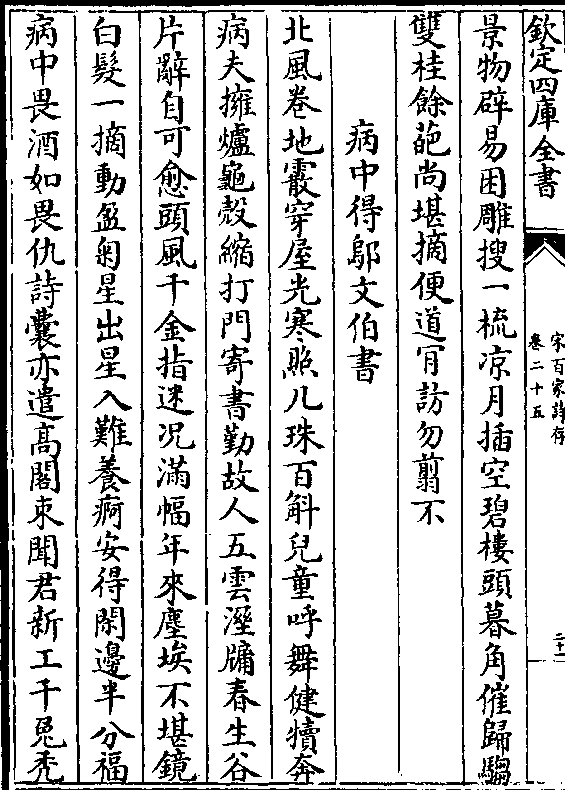 欽定四庫全書
宋百家詩存
卷二十五
二十一
景物辟易困雕搜一梳凉月插空碧樓頭暮角催歸騶
雙桂餘葩尚堪摘便道肎訪勿翦不
病中得鄔文伯書
北風卷地霰穿屋光寒照几珠百斛兒童呼舞健犢奔
病夫擁爐龜殻縮打門寄書勤故人五雲溼牗春生谷
片辭自可愈頭風千金指迷况滿幅年來塵埃不堪鏡
白髮一摘動盈匊星出星入難養痾安得閑邊半分福
病中畏酒如畏仇詩囊亦遣髙閣束聞君新工千兎秃